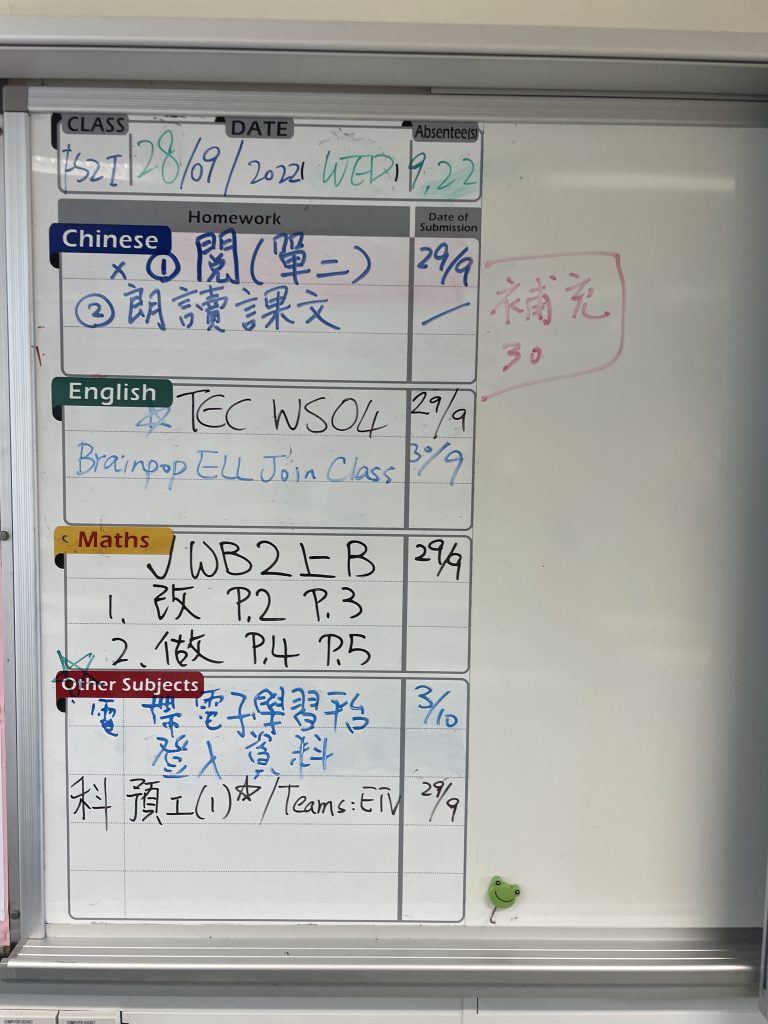 CLASS DATE Absentee(s)
S2I 28/09/2022 WED 9,22
Homework Date of Submission
Chinese
x ① 閱(單二) 29/9
② 朗讀課文 —
補充
30
English
☆ TEC WS04 29/9
Brainpop ELL Join Class 30/9
Maths
√ WB2上B 29/9
1. 改 P.2 P.3
2. 做 P.4 P.5
Other Subjects
電 帶電子學習平台 3/10
登入資料
科 預工(1)☆/Teams: ETV 29/9